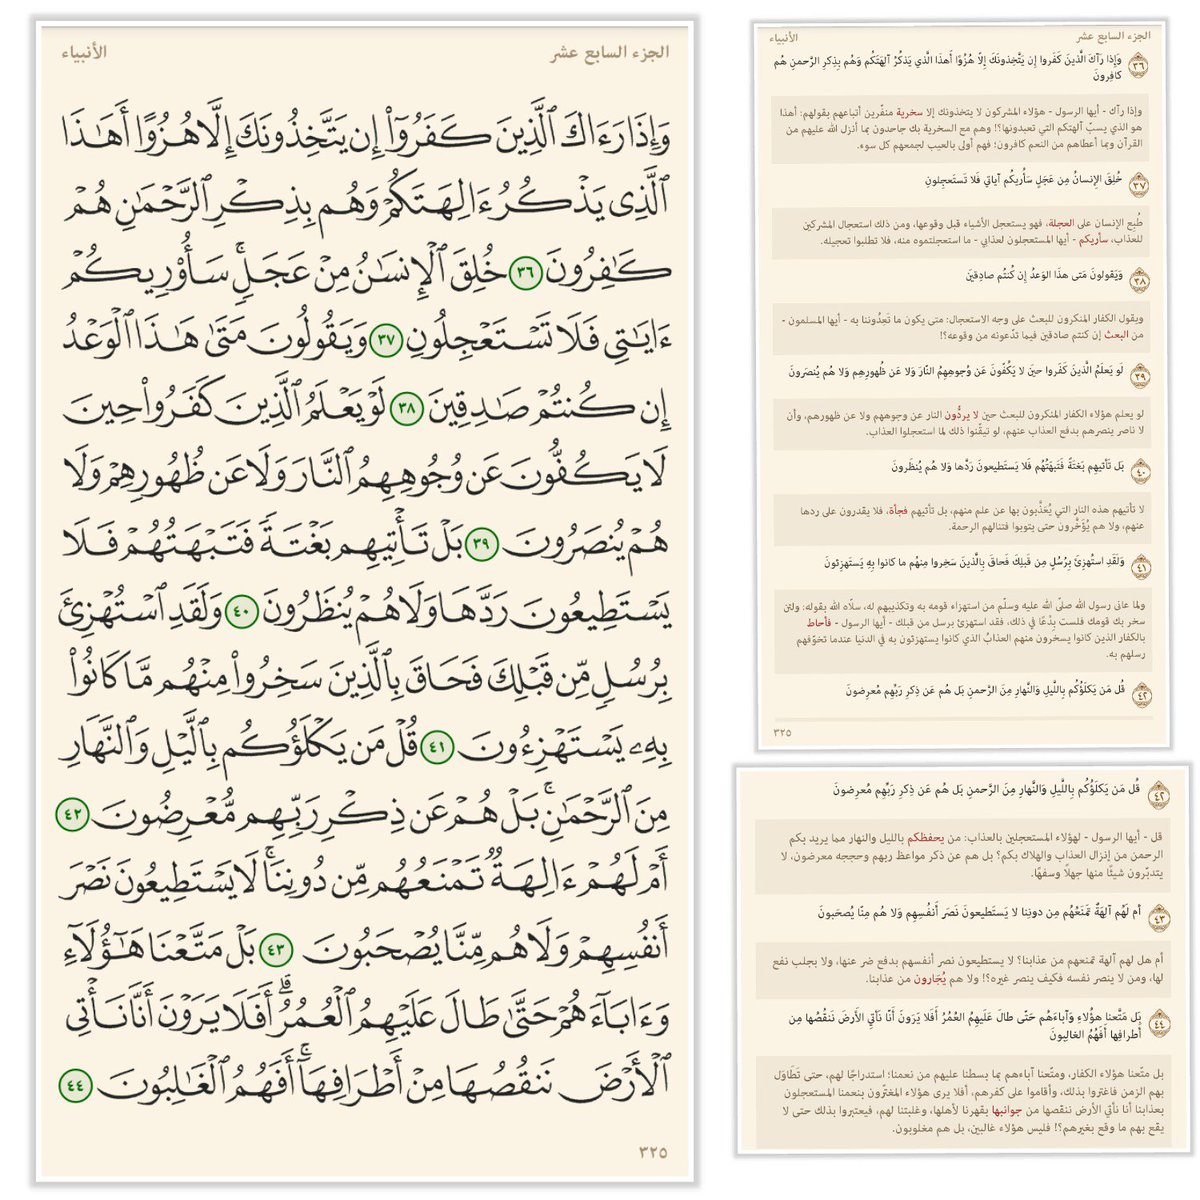 الجزء السابع عشر
الأنبياء
وَإِذَا رَءَاكَ ٱلَّذِينَ كَفَرُوٓاْ إِن يَتَّخِذُونَكَ إِلَّا هُزُوًا أَهَٰذَا
ٱلَّذِى يَذْكُرُ ءَالِهَتَكُمْ وَهُم بِذِكْرِ ٱلرَّحْمَٰنِ هُمْ
كَٰفِرُونَ ٣٦ خُلِقَ ٱلْإِنسَٰنُ مِنْ عَجَلٍۢ ۚ سَأُو۟رِيكُمْ
ءَايَٰتِى فَلَا تَسْتَعْجِلُونِ ٣٧ وَيَقُولُونَ مَتَىٰ هَٰذَا ٱلْوَعْدُ
إِن كُنتُمْ صَٰدِقِينَ ٣٨ لَوْ يَعْلَمُ ٱلَّذِينَ كَفَرُواْ حِينَ
لَا يَكُفُّونَ عَن وُجُوهِهِمُ ٱلنَّارَ وَلَا عَن ظُهُورِهِمْ وَلَا
هُمْ يُنصَرُونَ ٣٩ بَلْ تَأْتِيهِم بَغْتَةً فَتَبْهَتُهُمْ فَلَا
يَسْتَطِيعُونَ رَدَّهَا وَلَا هُمْ يُنظَرُونَ ٤٠ وَلَقَدِ ٱسْتُهْزِئَ
بِرُسُلٍ مِّن قَبْلِكَ فَحَاقَ بِٱلَّذِينَ سَخِرُواْ مِنْهُم مَّا كَانُواْ
بِهِۦ يَسْتَهْزِءُونَ ٤١ قُلْ مَن يَكْلَؤُكُم بِٱلَّيْلِ وَٱلنَّهَارِ
مِنَ ٱلرَّحْمَٰنِ ۚ بَلْ هُمْ عَن ذِكْرِ رَبِّهِم مُّعْرِضُونَ ٤٢
أَمْ لَهُمْ ءَالِهَةٌ تَمْنَعُهُم مِّن دُونِنَا ۚ لَا يَسْتَطِيعُونَ نَصْرَ
أَنفُسِهِمْ وَلَا هُم مِّنَّا يُصْحَبُونَ ٤٣ بَلْ مَتَّعْنَا هَٰٓؤُلَآءِ
وَءَابَآءَهُمْ حَتَّىٰ طَالَ عَلَيْهِمُ ٱلْعُمُرُ ۗ أَفَلَا يَرَوْنَ أَنَّا نَأْتِى
ٱلْأَرْضَ نَنقُصُهَا مِنْ أَطْرَافِهَآ ۚ أَفَهُمُ ٱلْغَٰلِبُونَ ٤٤
٣٢٥
الجزء السابع عشر
الأنبياء
٣٦ وَإِذا رَآكَ الَّذينَ كَفَروا إِن يَتَّخِذونَكَ إِلّا هُزُوًا أَهذَا الَّذي يَذكُرُ آلِهَتَكُم وَهُم بِذِكرِ الرَّحمنِ هُم
كافِرونَ
وإذا رآك - أيها الرسول - هؤلاء المشركون لا يتخذونك إلا سخرية منفّرين أتباعهم بقولهم: أهذا
هو الذي يسبّ آلهتكم التي تعبدونها؟! وهم مع السخرية بك جاحدون بما أنزل الله عليهم من
القرآن وبما أعطاهم من النعم كافرون؛ فهم أولى بالعيب لجمعهم كل سوء.
٣٧ خُلِقَ الإِنسانُ مِن عَجَلٍ سَأُريكُم آياتي فَلا تَستَعجِلونِ
طُبِع الإنسان على العجلة، فهو يستعجل الأشياء قبل وقوعها، ومن ذلك استعجال المشركين
للعذاب، سأريكم - أيها المستعجلون لعذابي - ما استعجلتموه منه، فلا تطلبوا تعجيله.
٣٨ وَيَقولونَ مَتى هذَا الوَعدُ إِن كُنتُم صادِقينَ
ويقول الكفار المنكرون للبعث على وجه الاستعجال: متى يكون ما تَعِدُوننا به - أيها المسلمون -
من البعث إن كنتم صادقين فيما تدّعونه من وقوعه؟!
٣٩ لَو يَعلَمُ الَّذينَ كَفَروا حينَ لا يَكُفّونَ عَن وُجوهِهِمُ النّارَ وَلا عَن ظُهورِهِم وَلا هُم يُنصَرونَ
لو يعلم هؤلاء الكفار المنكرون للبعث حين لا يردُّون النار عن وجوههم ولا عن ظهورهم، وأن
لا ناصر ينصرهم بدفع العذاب عنهم، لو تيقّنوا ذلك لما استعجلوا العذاب.
٤٠ بَل تَأتيهِم بَغتَةً فَتَبهَتُهُم فَلا يَستَطيعونَ رَدَّها وَلا هُم يُنظَرونَ
لا تأتيهم هذه النار التي يُعَذَّبون بها عن علم منهم، بل تأتيهم فجأة، فلا يقدرون على ردها
عنهم، ولا هم يُؤَخَّرون حتى يتوبوا فتنالهم الرحمة.
٤١ وَلَقَدِ استُهزِئَ بِرُسُلٍ مِن قَبلِكَ فَحاقَ بِالَّذينَ سَخِروا مِنهُم ما كانوا بِهِ يَستَهزِئونَ
ولما عانى رسول الله صلّى الله عليه وسلّم من استهزاء قومه به وتكذيبهم له، سلّاه الله بقوله: ولئن
سخر بك قومك فلست بِدْعًا في ذلك، فقد استهزئ برسل من قبلك - أيها الرسول - فأحاط
بالكفار الذين كانوا يسخرون منهم العذابُ الذي كانوا يستهزئون به في الدنيا عندما تخوّفهم
رسلهم به.
٤٢ قُل مَن يَكلَؤُكُم بِاللَّيلِ وَالنَّهارِ مِنَ الرَّحمنِ بَل هُم عَن ذِكرِ رَبِّهِم مُعرِضونَ
٣٢٥
٤٢ قُل مَن يَكلَؤُكُم بِاللَّيلِ وَالنَّهارِ مِنَ الرَّحمنِ بَل هُم عَن ذِكرِ رَبِّهِم مُعرِضونَ
قل - أيها الرسول - لهؤلاء المستعجلين بالعذاب: من يحفظكم بالليل والنهار مما يريد بكم
الرحمن من إنزال العذاب والهلاك بكم؟ بل هم عن ذكر مواعظ ربهم وحججه معرضون، لا
يتدبّرون شيئًا منها جهلًا وسفهًا.
٤٣ أَم لَهُم آلِهَةٌ تَمنَعُهُم مِن دونِنا لا يَستَطيعونَ نَصرَ أَنفُسِهِم وَلا هُم مِنّا يُصحَبونَ
أم هل لهم آلهة تمنعهم من عذابنا؟ لا يستطيعون نصر أنفسهم بدفع ضر عنها، ولا بجلب نفع
لها، ومن لا ينصر نفسه فكيف ينصر غيره؟! ولا هم يُجَارون من عذابنا.
٤٤ بَل مَتَّعنا هؤُلاءِ وَآباءَهُم حَتّى طالَ عَلَيهِمُ العُمُرُ أَفَلا يَرَونَ أَنّا نَأتِي الأَرضَ نَنقُصُها مِن
أَطرافِها أَفَهُمُ الغالِبونَ
بل متّعنا هؤلاء الكفار، ومتّعنا آباءهم بما بسطنا عليهم من نعمنا؛ استدراجًا لهم، حتى تطَاوَل
بهم الزمن فاغتروا بذلك، وأقاموا على كفرهم، أفلا يرى هؤلاء المغترّون بنعمنا المستعجلون
بعذابنا أنا نأتي الأرض ننقصها من جوانبها بقهرنا لأهلها، وغلبتنا لهم، فيعتبروا بذلك حتى لا
يقع بهم ما وقع بغيرهم؟! فليس هؤلاء غالبين، بل هم مغلوبون.